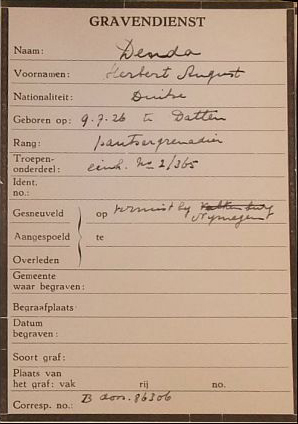 GRAVENDIENST
Naam: Denda
Voornamen: Herbert August
Nationaliteit: Duitse
Geboren op: 9.7.26 te Datteln
Rang: pantsergrenadier
Troepen-
onderdeel: einh. No 2/365
Ident.
no.:
Gesneuveld op vermist bij Valkenburg
Nijmegen
Aangespoeld te
Overleden
Gemeente
waar begraven:
Begraafplaats
Datum
begraven:
Soort graf:
Plaats van
het graf: vak rij no.
Corresp. no.: B 86306